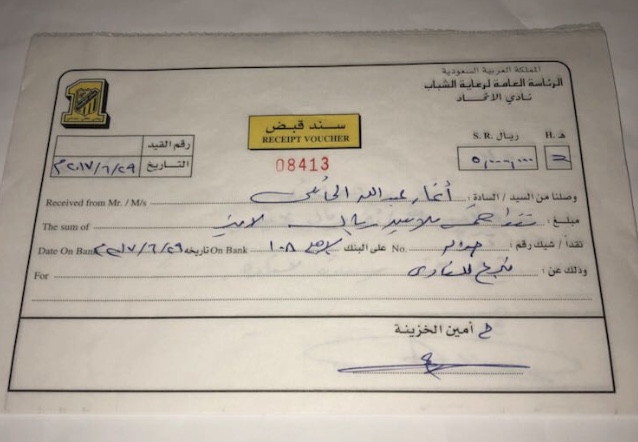 المملكة العربية السعودية
الرئاسة العامة لرعاية الشباب
نادي الاتحاد
1
سند قبض
RECEIPT VOUCHER
08413
رقم القيد
التاريخ ٢٠١٧/٦/٢٩م
S. R. ريال H. هـ
٥,٠٠٠,٠٠٠
Received from Mr. / M/s وصلنا من السيد / السادة : أنمار عبدالله الحائلي
The sum of مبلغ : نقدا خمسة ملايين ريال لا غير
Date On Bank ٢٠١٧/٦/٢٩ تاريخه On Bank على البنك No. نقداً / شيك رقم :
For وذلك عن : تبرع للنادي
أمين الخزينة